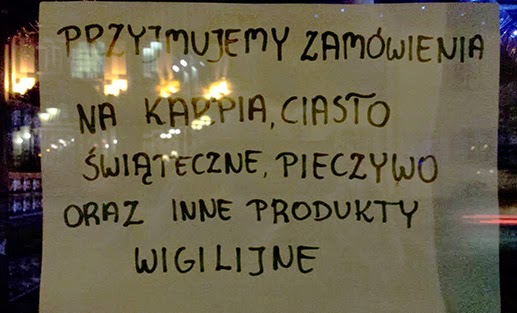 PRZYJMUJEMY ZAMÓWIENIA
NA KARPIA, CIASTO
ŚWIĄTECZNE, PIECZYWO
ORAZ INNE PRODUKTY
WIGILIJNE